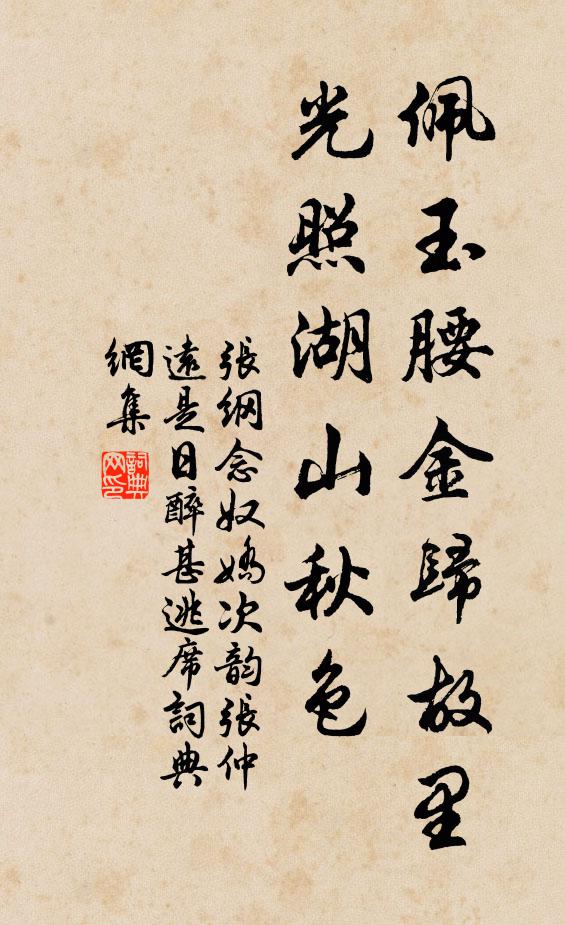 佩玉腰金歸故里
光照湖山秋色
張綱念奴嬌次韵張仲
遠是日醉甚逃席詞典
網集
詞典
网印